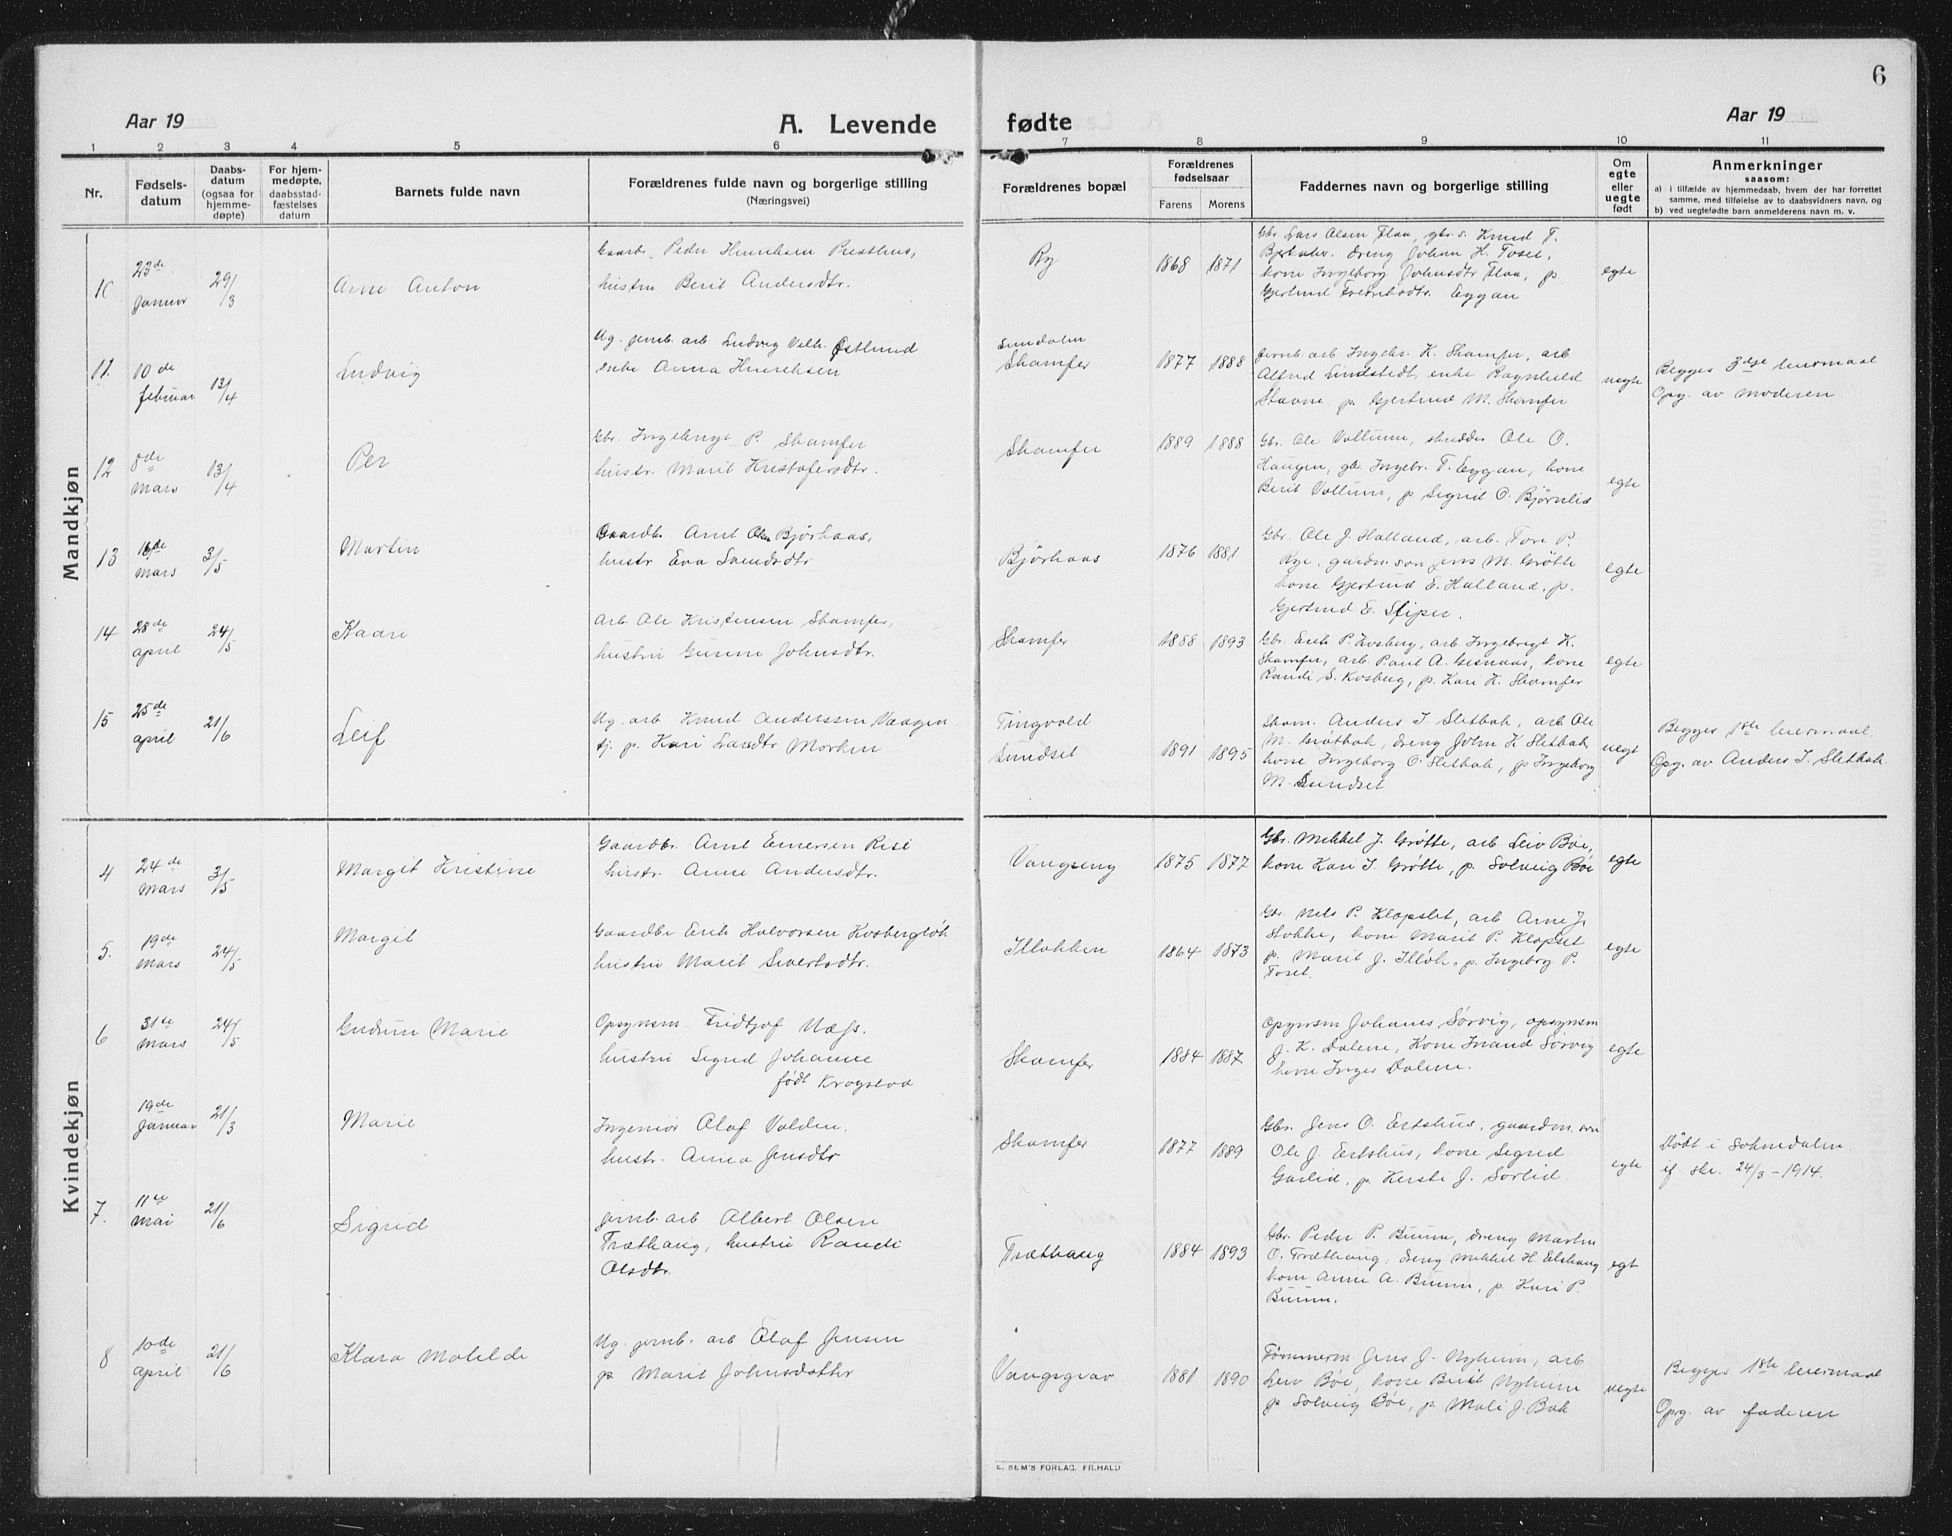 6
Aar 19
A. Levende
fødte
Aar 19
1 2 3 4 5 6 7 8 9 10 11
Nr.
Fødsels-
datum
Daabs-
datum
(ogsaa for
hjemme-
døpte)
For hjem-
medøpte,
daabsstad-
fæstelses
datum
Barnets fulde navn
Forældrenes fulde navn og borgerlige stilling
(Næringsvei)
Forældrenes bopæl
Forældrenes
fødselsaar
Farens
Morens
Faddernes navn og borgerlige stilling
Om
egte
eller
uegte
født
Anmerkninger
saasom:
a) i tilfælde av hjemmedaab, hvem der har forrettet
samme, med tilføielse av to daabsvidners navn, og
b) ved uegtefødte barn anmelderens navn m. v.
Mandkjøn
10
23de
Januar
29/3
Arne Anton
Gaardb. Peder Henriksen Presthus,
hustru Berit Andersdtr.
Ry
1868 1871
Gbr. Lars Olsen Flaa, gbr. s. Knud T.
dreng Johan H. Toset,
kone Ingeborg Johnsdtr Flaa, p.
Gjertrud Fredriksdtr. Eggan
egte
11.
10de
februar
13/4
Ludvig
Ug. jernb. arb Ludvig Vilh. Østlund
enke Anna Henriksen
Sundalen
Skamfer
1877 1888
Jernb. arb Ingebr. K. Skamfer, arb
Alfred Lindstedt, enke Ragnhild
Stavne, p. Gjertrud M. Skamfer
uegte
Begges 3dje leiermaal
Opg. av moderen
12
8de
mars
13/4
Per
Gbr. Ingebrigt P. Skamfer
hustr. Marit Kristofersdtr.
Skamfer
1889 1888
Gbr. Ole Vollum, skrædder Ole O.
Haugen, gbr. Ingebr. T. Eggan, kone
Berit Vollum, p Sigrid O. Bjørnlid
egte
13
16de
mars
3/5
Martin
Gaardb. Arnt Olsen Bjørkaas,
hustr Eva Svendsdtr
Bjørkaas
1876 1881
Gbr. Ole J. Halland, arb. Tore P.
Rye, gardm. søn Jens M. Grøtte
kone Gjertrud E. Halland, p.
Gjertrud E. Sliper.
egte
14
28de
april
24/5
Kaare
Arb Ole Kristensen Skamfer,
hustru Gurine Johnsdtr.
Skamfer
1888 1893
Gbr. Erik P. Kosberg, arb Ingebrigt K.
Skamfer, arb. Paul A. Gisnaas, kone
Randi S. Kosberg, p. Kari K. Skamfer
egte
15
25de
april
21/6
Leif
Ug. arb Knud Anderssen Vaagen
tj. p. Kari Larsdtr Morken
Tingvold
Sundset
1891 1895
Anders I. Sletbak, arb Ole
M. Grøtbak, dreng John K Sletbak,
kone Ingeborg O. Sletbak, p Ingeborg
M. Sundset
uegt
Begges 1ste leiermaal.
Opg. av Anders I. Sletbak
Kvindekjøn
4
24de
mars
3/5
Margit Kristine
Gaardbr. Arnt Einersen Rise
hustr. Anne Andersdtr.
Vangseng
1875 1877
Gbr. Mikkel J. Grøtte, arb Leiv Bøe,
kone Kari I. Grøtte, p. Solveig Bøe
egte
5.
19de
mars
24/5
Margit
Gaardbr Erik Halvorsen Kosbergløk
hustru Marit Sivertsdtr.
Illøkken
1864 1873
Gbr. Nils P. Klopslet, arb Arne J.
Stokke, kone Marit P. Klopset
p. Marit J. Illøk, p. Ingeborg P.
Toset.
egte
6
31te
mars
24/5
Gudrun Marie
Opsynsm. Fridtjof Næss.
hustru Sigrid Johanne
født Krogstad
Skamfer
1884 1887
Opsynsm Johanes Sørvig, opsynsm
J. K. Dalene, kone Sørvig
kone Inger Dalene.
egte
19de
Januar
21/3
Marie
Ingeniør Olaf Volden.
hustr. Anna Jensdtr
Skamfer
1877 1889
Gbr. Jens O. Ertshus, gaardm. søn
Ole J. Ertshus, kone Sigrid
Garlid, p. Kerste J. Sørlid.
egte
Død i Soknedalen
if. skr. 24/3 - 1914.
7.
11te
mai
21/6
Sigrid
Jernb. arb Albert Olsen
Træthaug, hustru Randi
Olsdtr.
Træthaug
1884 1893
Gbr. Peder P. Buum, dreng Martin
O. Træthaug, dreng Mikkel H. Elshaug
kone Anne A. Buum, p. Kari P.
Buum.
egt
8
10de
april
21/6
Klara Matilde
Ug. jernb. arb Olaf Jensen
p. Marit Johnsdatter
Vangsgrav
1881 1890
Tømmerm. Jens J. Nyheim, arb
Leiv Bøe, kone Berit Nyheim
p. Solveig Bøe, p. Mali J. Bak
uegte
Begges 1ste leiermaal
Opg. av faderen
E. SEM'S FORLAG. FR.HALD